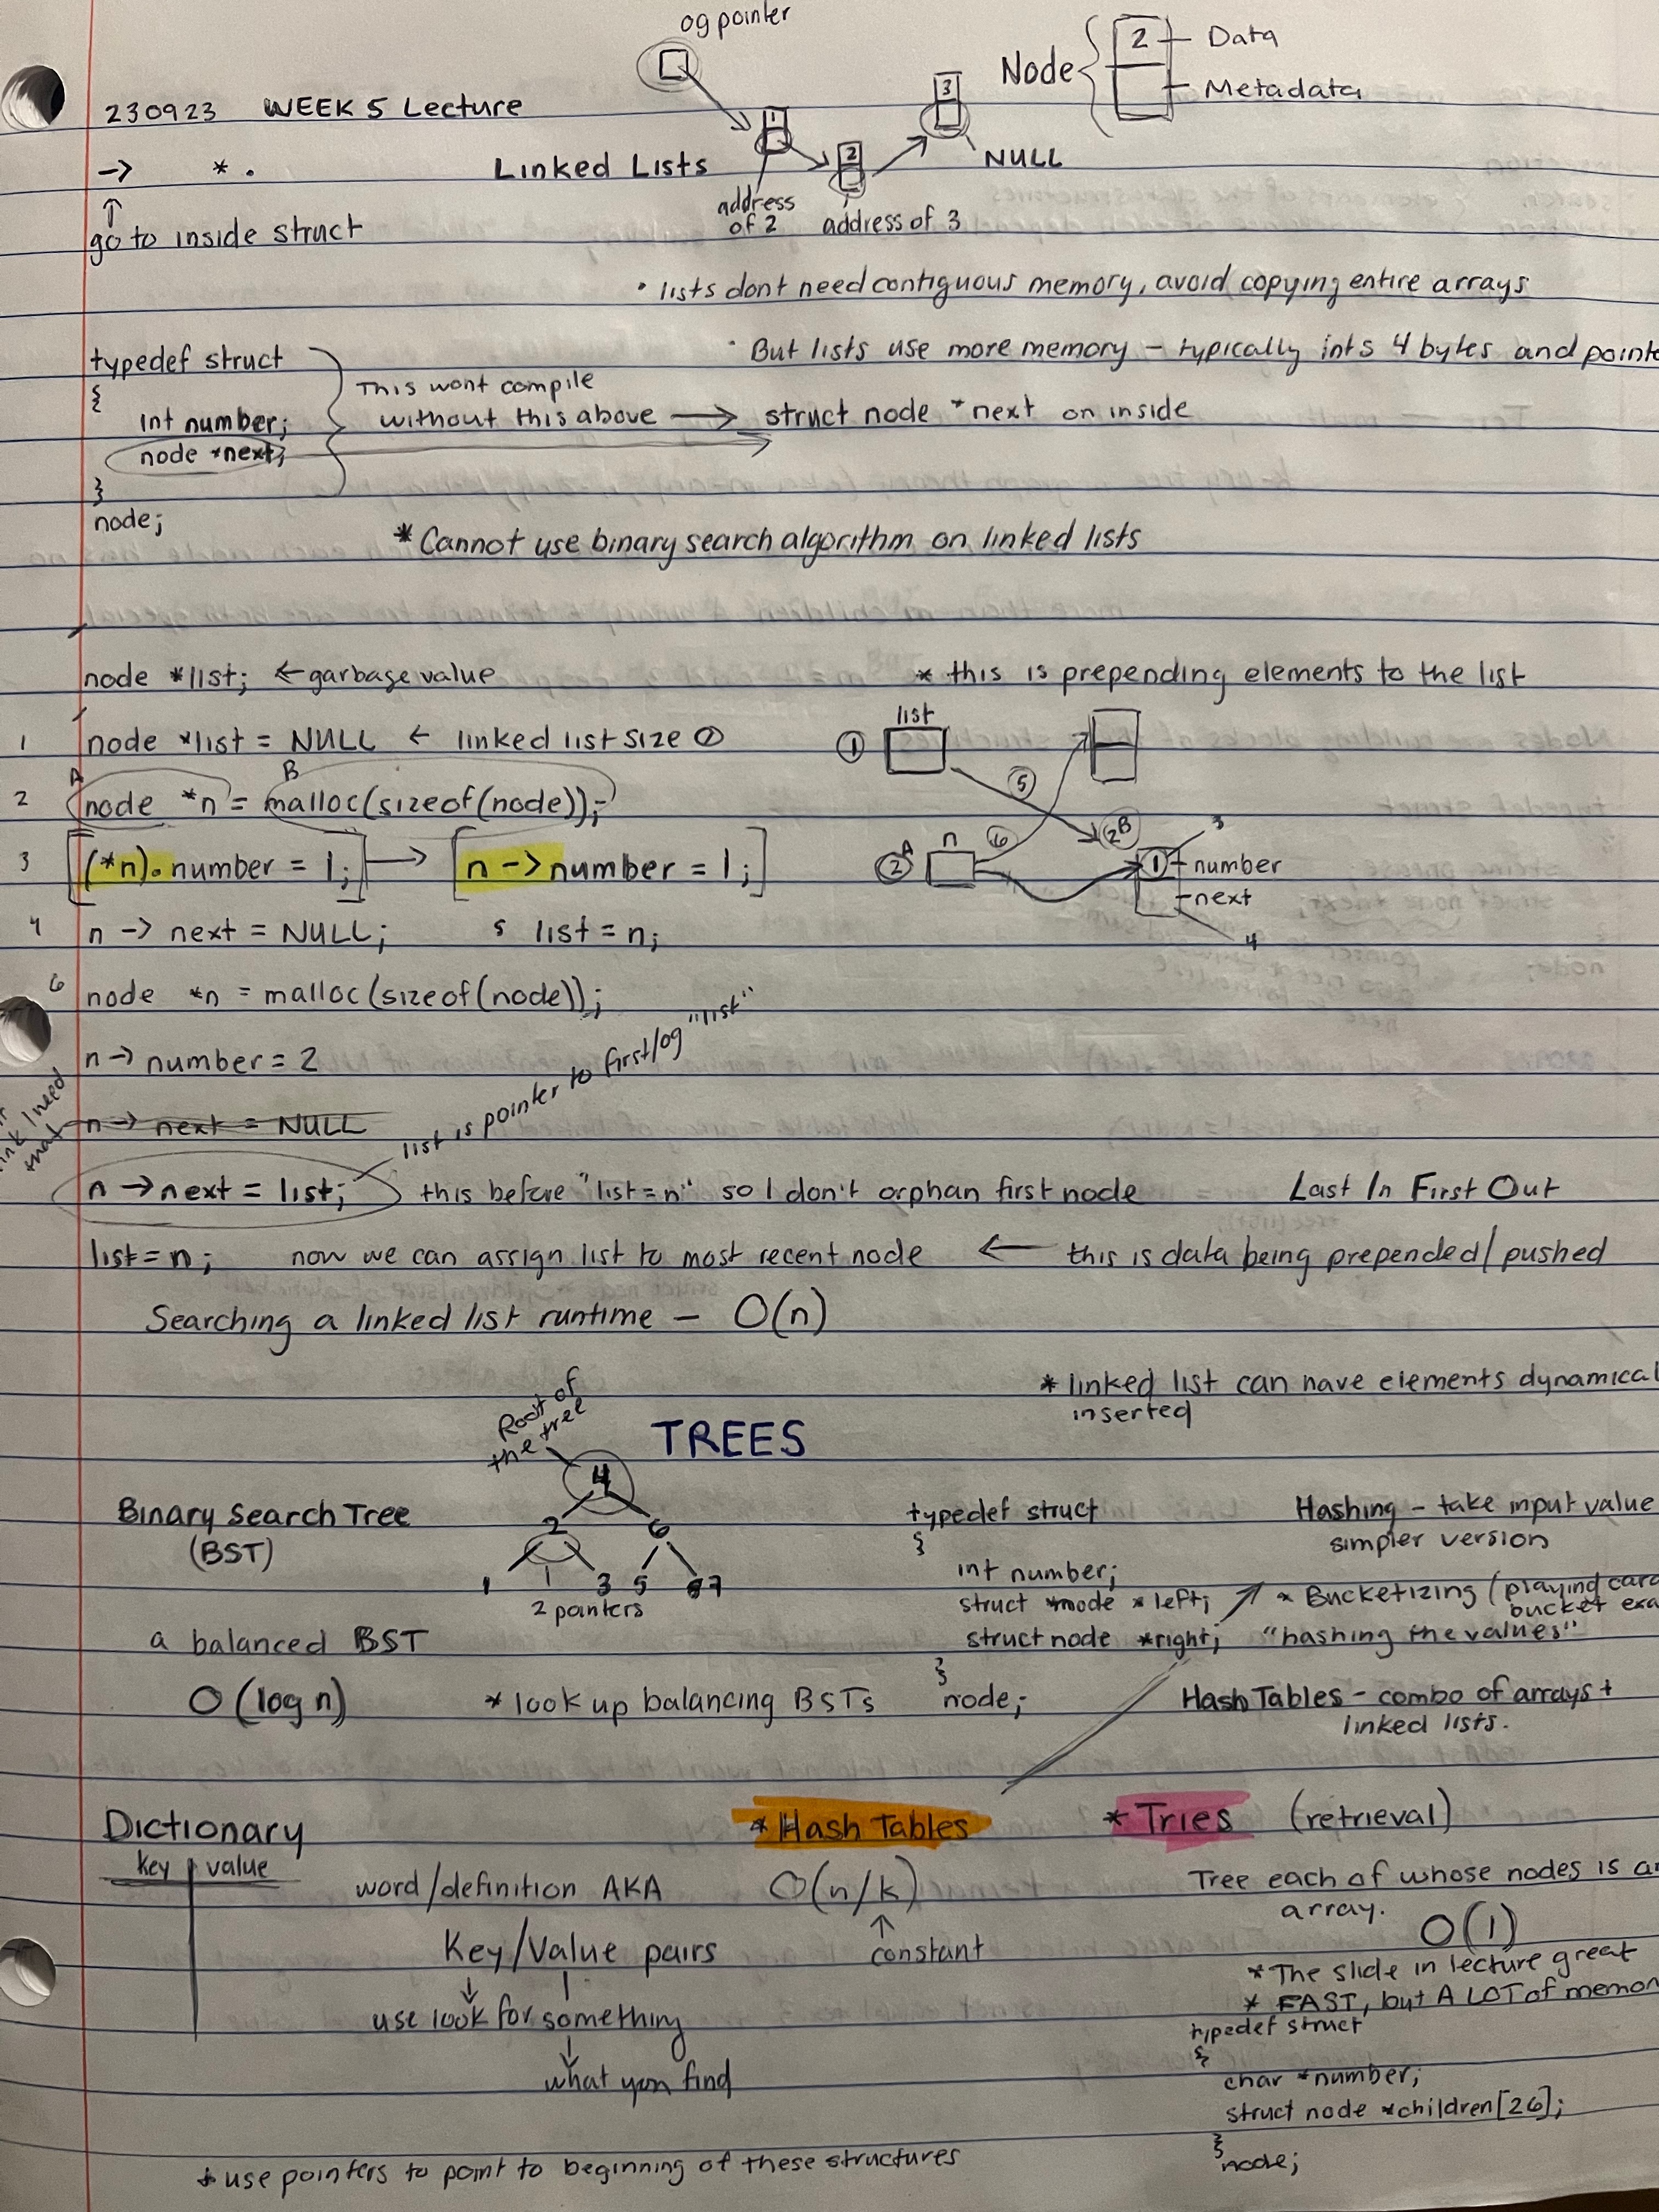 og pointer
Node { 2 - Data
Metadata
230923 WEEK 5 Lecture
1
2
3
NULL
-> * .
Linked Lists
address of 2
address of 3
↑
go to inside struct
• lists dont need contiguous memory, avoid copying entire arrays
• But lists use more memory - typically ints 4 bytes and
typedef struct
{
int number;
node *next;
}
node;
This wont compile
without this above → struct node *next on inside
* Cannot use binary search algorithm on linked lists
node *list; ← garbage value
* this is prepending elements to the list
1 node *list = NULL ← linked list size 0
A B
2 node *n = malloc(sizeof(node));
3 (*n).number = 1; → n->number = 1;
4 n -> next = NULL; 5 list = n;
list
1
5
2B
3
2A n 6
1 number
next
4
6 node *n = malloc(sizeof(node));
n -> number = 2
n -> next = NULL
I need that
list is pointer to first/og "list"
n -> next = list; this before "list=n" so I don't orphan first node
Last In First Out
list = n; now we can assign list to most recent node ← this is data being prepended/pushed
Searching a linked list runtime - O(n)
* linked list can have elements
inserted
Root of the tree
TREES
Binary Search Tree
(BST)
4
2 6
1 3 5 7
2 pointers
a balanced BST
O(log n)
* look up balancing BSTs
typedef struct
{
int number;
struct node *left;
struct node *right;
}
node;
Hashing - take input value
simpler version
* Bucketizing (playing
bucket
"hashing the values"
Hash Tables - combo of arrays +
linked lists.
Dictionary
key value
word/definition AKA
Key/Value pairs
use look for something
what you find
* Hash Tables
O(n/k)
↑
constant
* Tries (retrieval)
Tree each of whose nodes is
array.
O(1)
* The slide in lecture great
* FAST, but A LOT of
typedef struct
{
char *number;
struct node *children[26];
}
node;
* use pointers to point to beginning of these structures